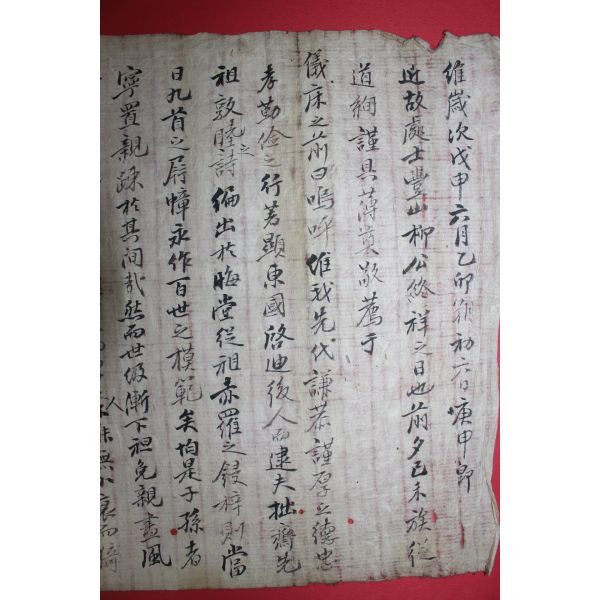 維歲次戊申六月乙卯朔初六日庚申卽
近故處士豐山柳公終祥之日也前夕己未族從
道絢謹具薄奠敬薦于
儀床之前曰嗚呼惟我先代謙恭謹厚之德忠
孝勤儉之行著顯東國啓迪後人而逮夫拙齋先
祖敦睦之詩編出於晦堂從祖赤羅之鋟梓則當
日九首之屛幛永作百世之模範矣均是子孫者
寧置親疎於其間哉然而世級漸下袒免親盡風